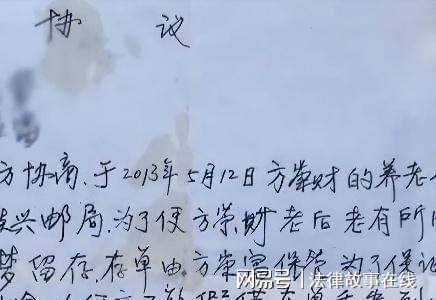 协 议
方协商,于2013年5月12日方荣财的养老
兴邮局,为了使方荣财老后老有所
梦留存,存单由方荣富保管,为了保证
网易号 | 法律故事在线